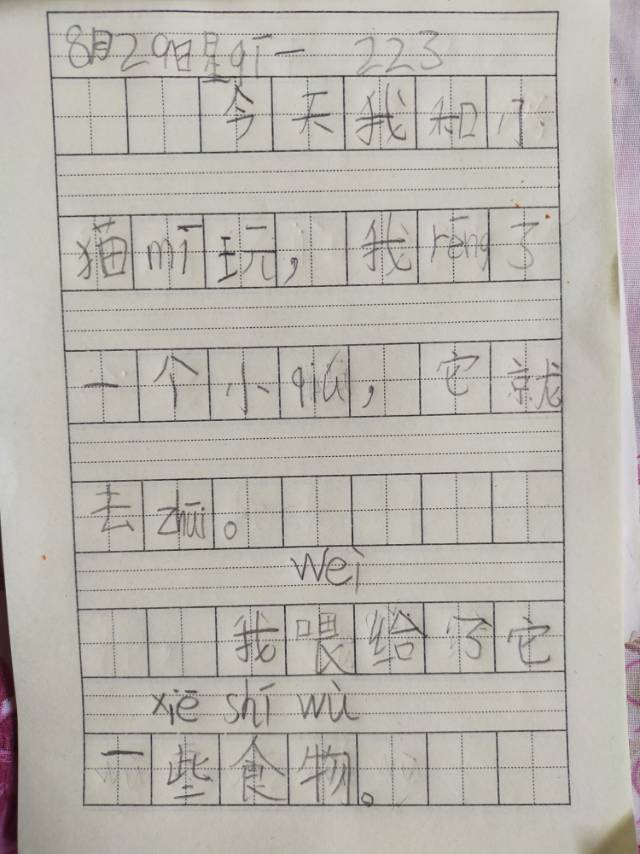 8月29日星qī一 223
今天我和小
猫mī玩，我rēng了
一个小qiú，它就
去zhuī。
wèi
我喂给了它
xiē shí wù
一些食物。